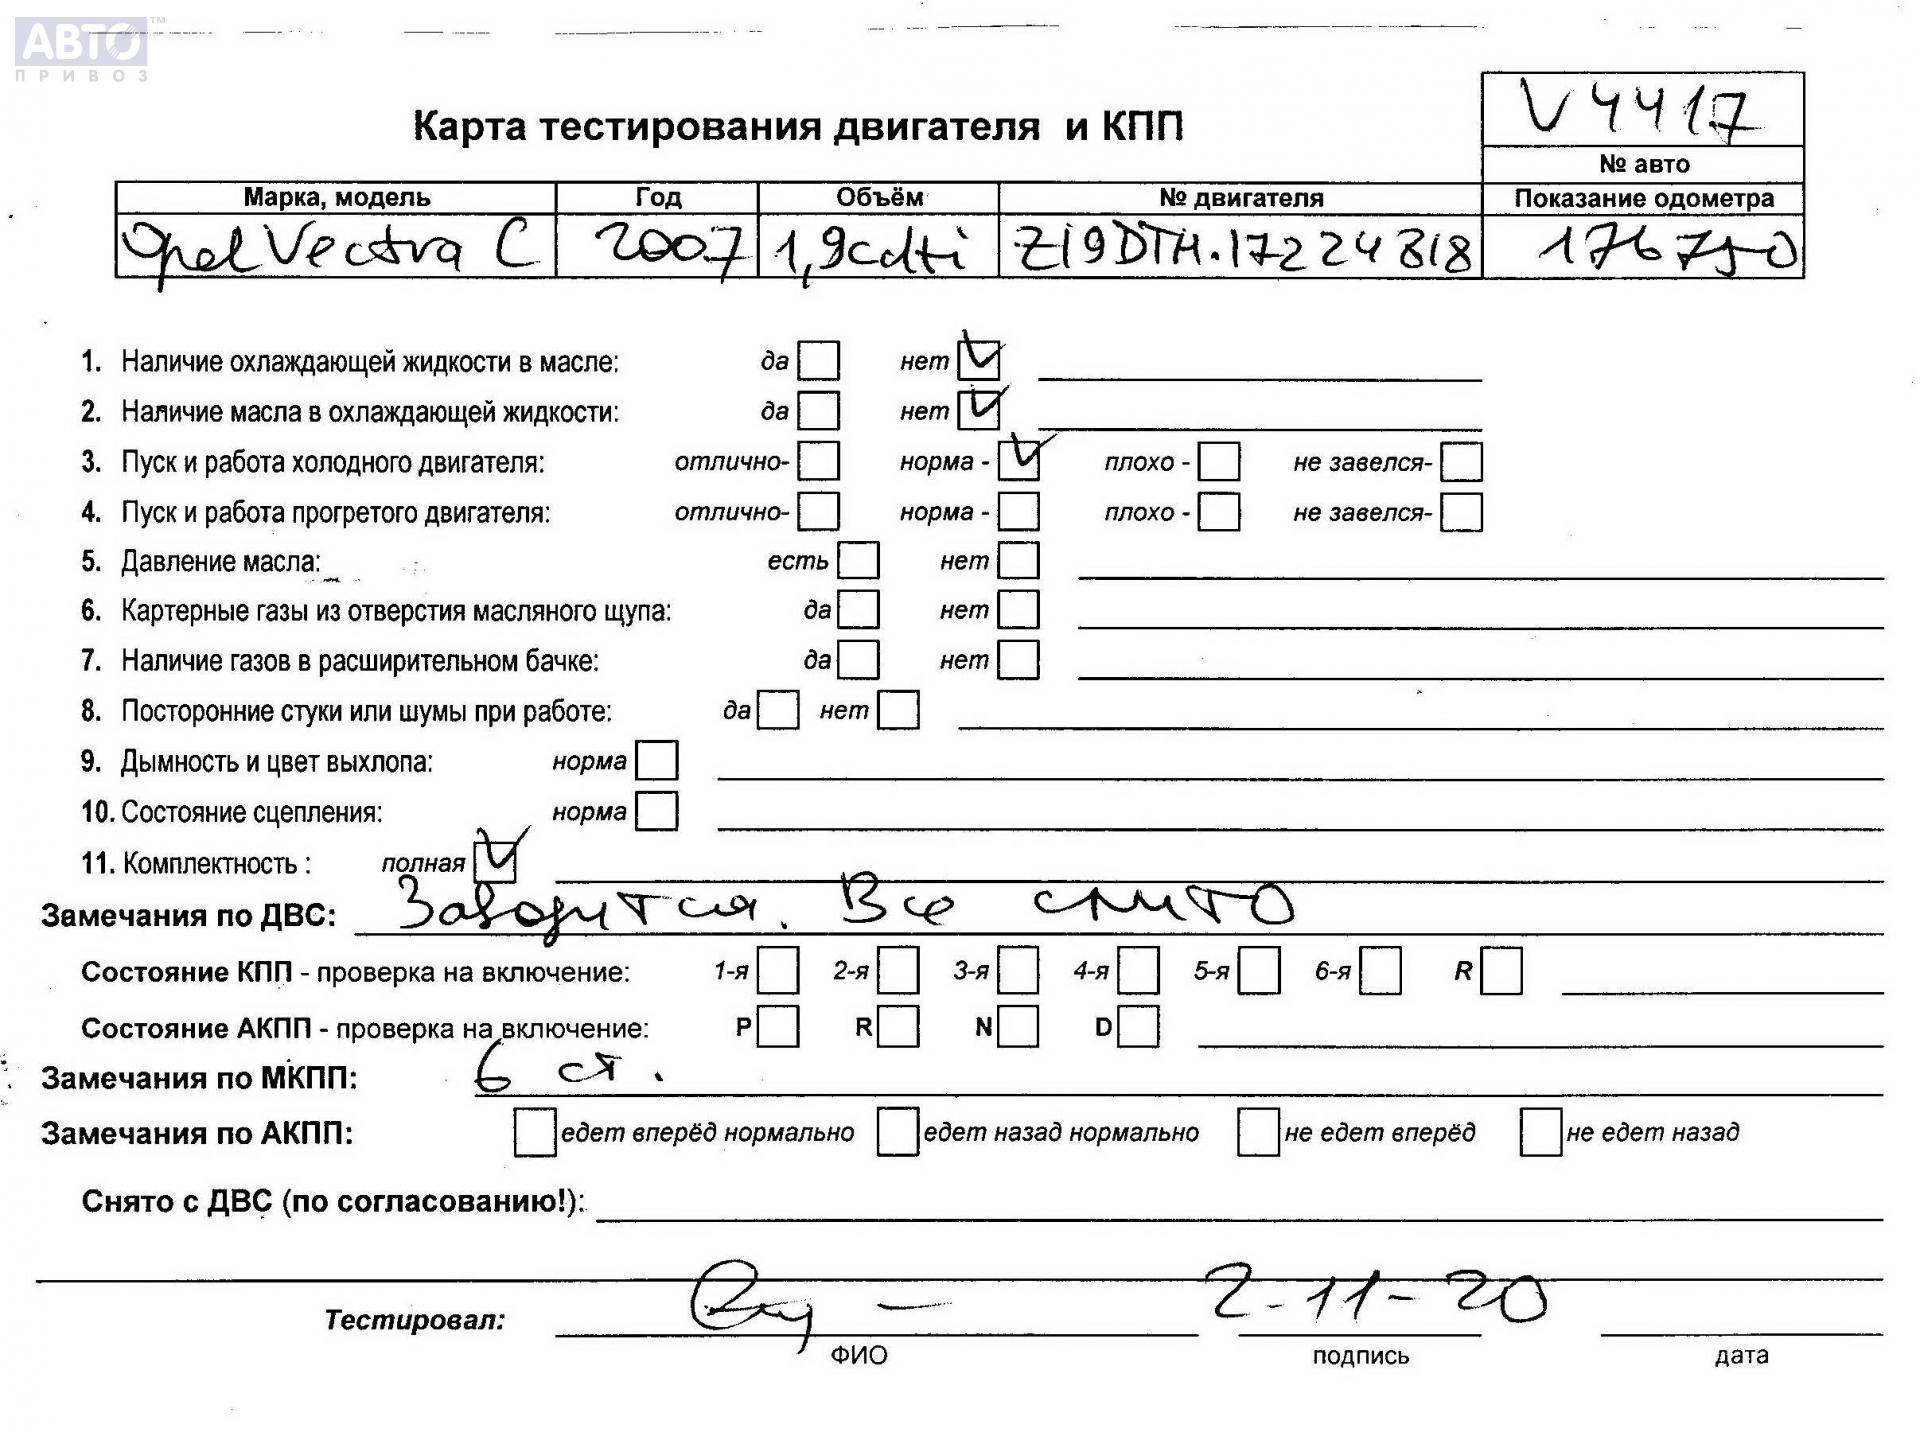 АВТО™
ПРИВОЗ
V4417
Карта тестирования двигателя и КПП
№ авто
Марка, модель Год Объём № двигателя Показание одометра
Opel Vectra C 2007 1,9cdti Z19DTH.17224818 176750
1. Наличие охлаждающей жидкости в масле: да нет
2. Наличие масла в охлаждающей жидкости: да нет
3. Пуск и работа холодного двигателя: отлично- норма - плохо - не завелся-
4. Пуск и работа прогретого двигателя: отлично- норма - плохо - не завелся-
5. Давление масла: есть нет
6. Картерные газы из отверстия масляного щупа: да нет
7. Наличие газов в расширительном бачке: да нет
8. Посторонние стуки или шумы при работе: да нет
9. Дымность и цвет выхлопа: норма
10. Состояние сцепления: норма
11. Комплектность : полная
Замечания по ДВС: Заводится. Все слито
Состояние КПП - проверка на включение: 1-я 2-я 3-я 4-я 5-я 6-я R
Состояние АКПП - проверка на включение: P R N D
Замечания по МКПП: 6 ст.
Замечания по АКПП: едет вперёд нормально едет назад нормально не едет вперёд не едет назад
Снято с ДВС (по согласованию!):
Тестировал: 2-11-20
ФИО подпись дата